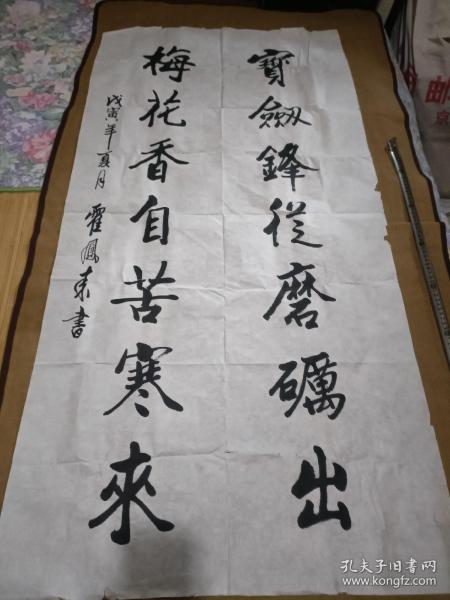 寶劔鋒從磨礪出
梅花香自苦寒來
戊寅年夏月 霍鳳來書
孔夫子旧书网
www.kongfz.com